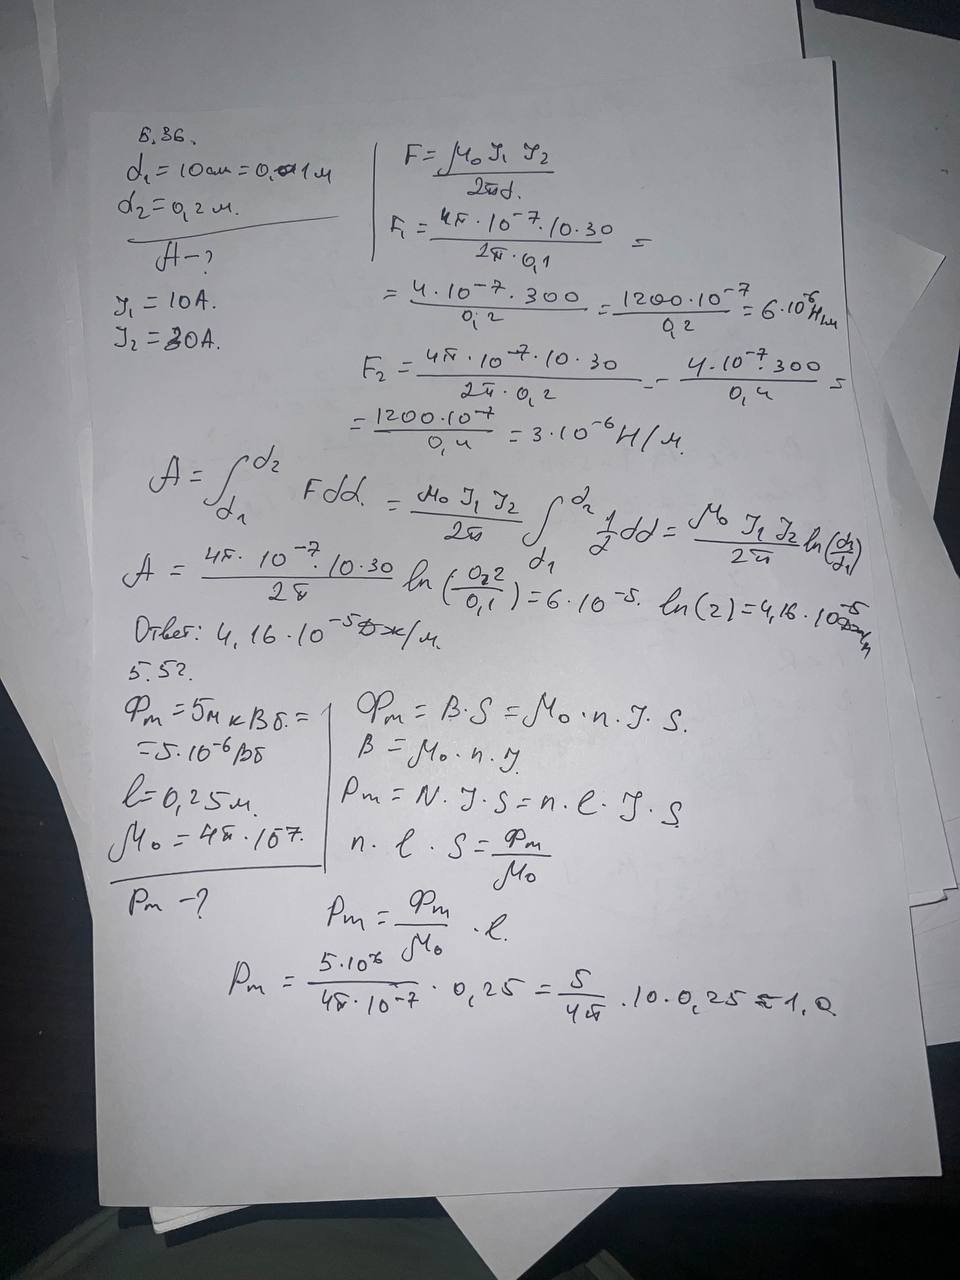 5.36.
d₁ = 10см = 0,1м
d₂ = 0,2м.
A - ?
J₁ = 10А.
J₂ = 30А.
F = μ₀ J₁ J₂ / 2πd.
F₁ = 4π · 10⁻⁷ · 10 · 30 / 2π · 0,1 =
= 4 · 10⁻⁷ · 300 / 0,2 = 1200 · 10⁻⁷ / 0,2 = 6 · 10⁻⁶ Н/м
F₂ = 4π · 10⁻⁷ · 10 · 30 / 2π · 0,2 = 4 · 10⁻⁷ · 300 / 0,4 =
= 1200 · 10⁻⁷ / 0,4 = 3 · 10⁻⁶ Н/м.
A = ∫d₁^d₂ Fdd. = μ₀ J₁ J₂ / 2π ∫d₁^d₂ 1/d dd = μ₀ J₁ J₂ / 2π ln(d₂/d₁)
A = 4π · 10⁻⁷ · 10 · 30 / 2π ln(0,2 / 0,1) = 6 · 10⁻⁵ · ln(2) = 4,16 · 10⁻⁵ Дж/м
Ответ: 4,16 · 10⁻⁵ Дж/м.
5.52.
Фm = 5мкВб. =
= 5 · 10⁻⁶ Вб
l = 0,25м.
μ₀ = 4π · 10⁻⁷.
Pm - ?
Фm = B · S = μ₀ · n · J · S.
B = μ₀ · n · J.
Pm = N · J · S = n · l · J · S
n · l · S = Фm / μ₀
Pm = Фm / μ₀ · l.
Pm = 5 · 10⁻⁶ / 4π · 10⁻⁷ · 0,25 = 5 / 4π · 10 · 0,25 = 1,0